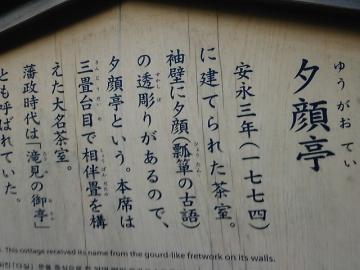 夕顔亭
ゆうがおてい
安永三年(一七七四)
に建てられた茶室。
袖壁に夕顔(瓢箪の古語)
の透彫りがあるので、
夕顔亭という。本席は
三畳台目で相伴畳を構
えた大名茶室。
藩政時代は「滝見の御亭」
とも呼ばれていた。
s. This cottage received its name from the gourd-like fretwork on its walls.